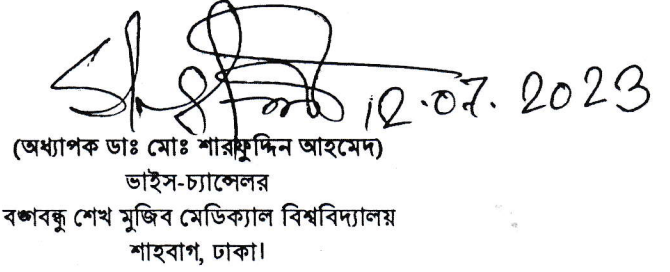 12.07.2023
(অধ্যাপক ডাঃ মোঃ শারফুদ্দিন আহমেদ)
ভাইস-চ্যান্সেলর
বঙ্গবন্ধু শেখ মুজিব মেডিক্যাল বিশ্ববিদ্যালয়
শাহবাগ, ঢাকা।